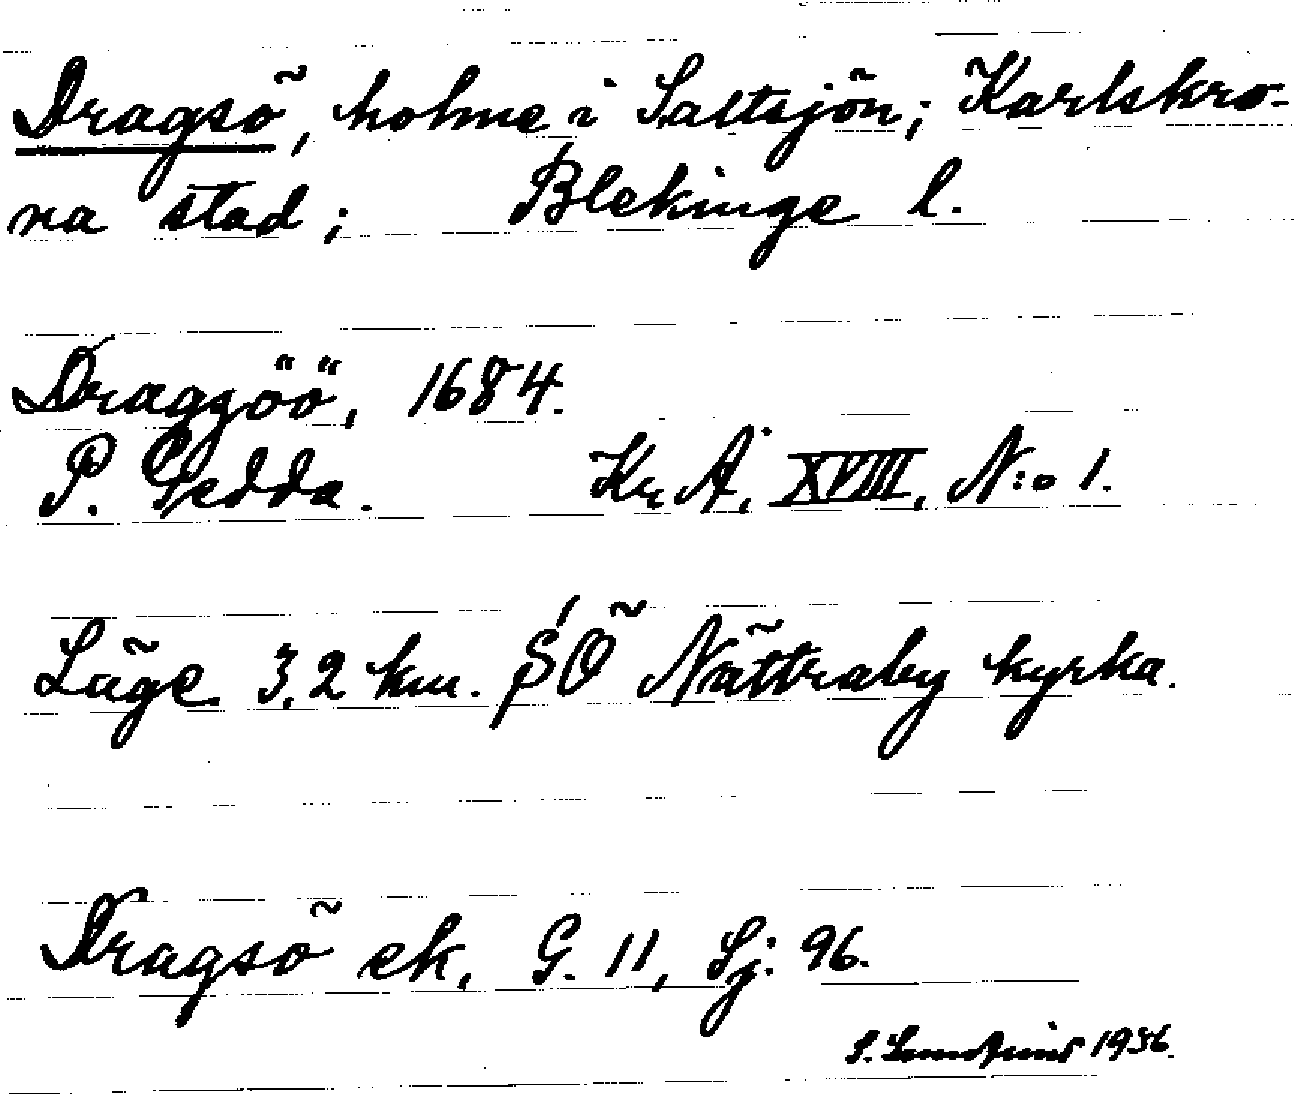 Dragsö, holme i Saltsjön; Karlskro-
na stad; Blekinge l.
Dragzöö, 1684.
P. Gedda. Kr. A. XVIII, N:o 1.
Läge 3,2 km. SÖ Nättraby kyrka.
Dragsö ek. G. 11, Sj. 96.
1936.